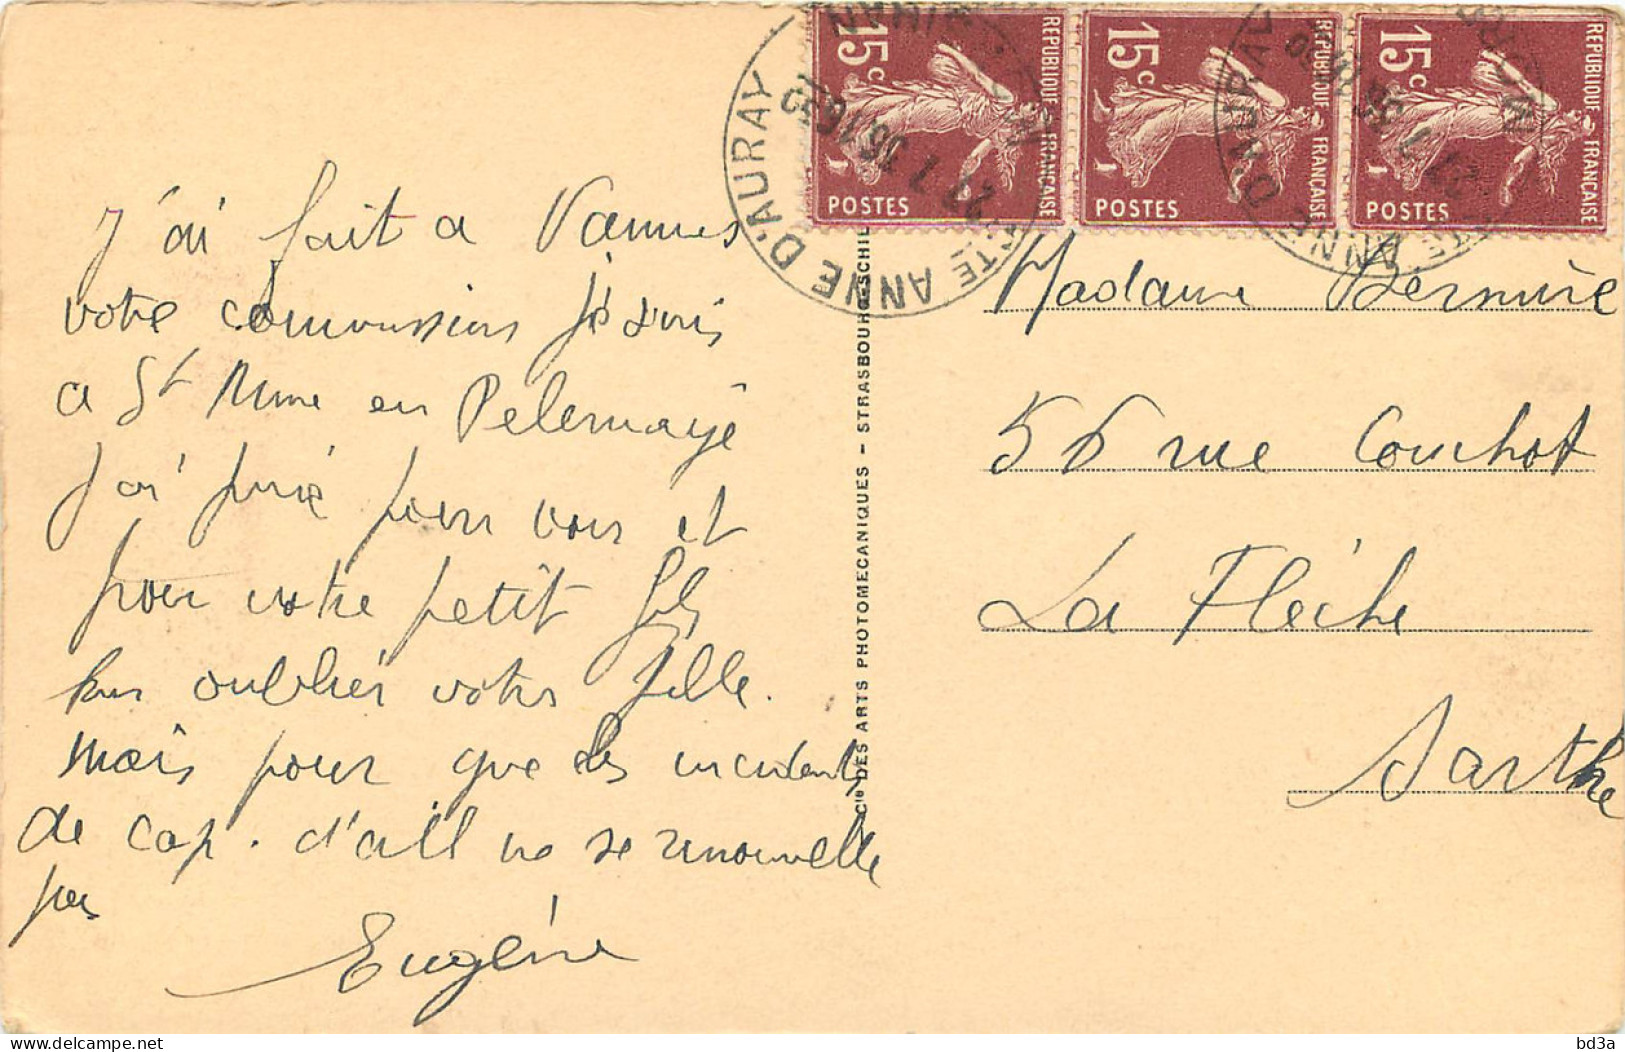 J'ai fait a Vannes
votre commissions je suis
a St Anne en Pelerinage
J'ai prié pour vous et
pour votre petit fils
sans oublier votre fille.
Mais pour que les incidents
de cap. d'all ne se renouvelle
pas
Eugène
Madame
56 rue Couchot
La Flèche
Sarthe
Cie DES ARTS PHOTOMECANIQUES - STRASBOURG-SCHIL
15c
REPUBLIQUE FRANÇAISE
POSTES
15c
REPUBLIQUE FRANÇAISE
POSTES
15c
REPUBLIQUE FRANÇAISE
POSTES
STE ANNE D'AURAY
STE ANNE D'AURAY
bd3a